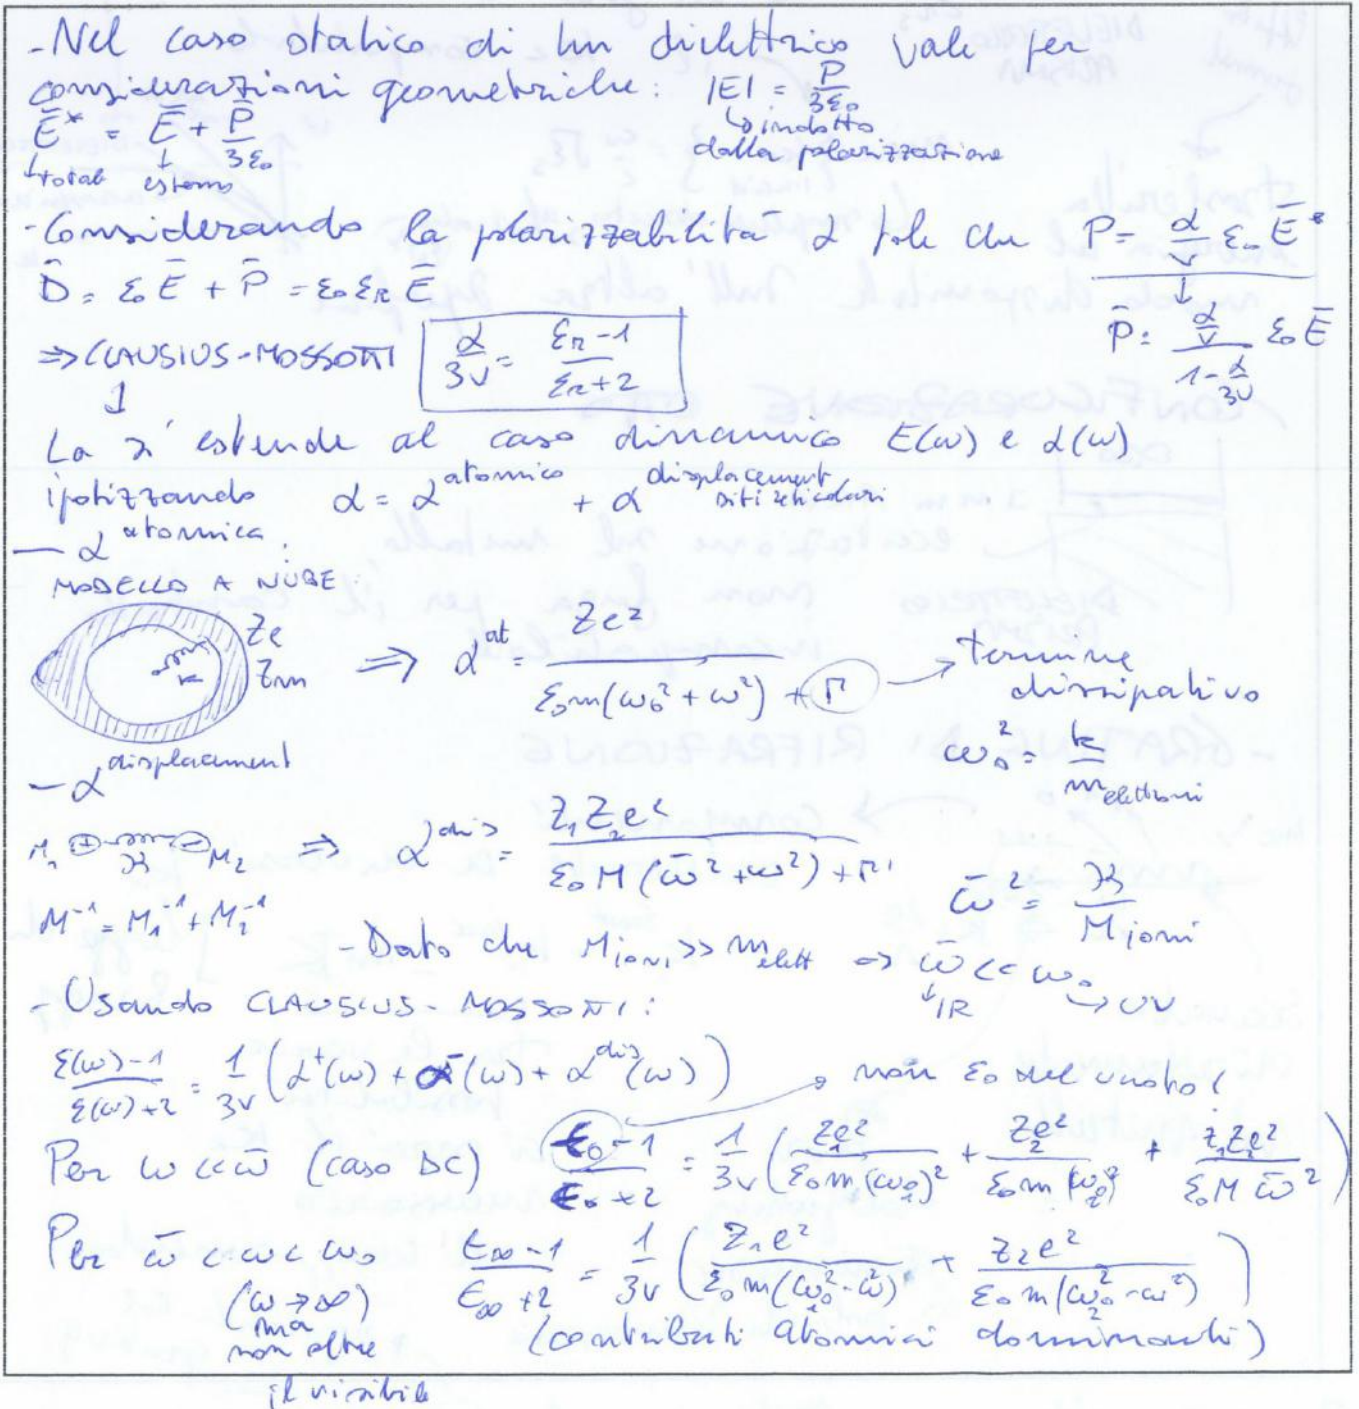 - Nel caso statico di un dielettrico vale per
considerazioni geometriche: |E| = P/3ε₀
↳ indotto
dalla polarizzazione
Ē* = Ē + P̄/3ε₀
↓ total ↓ esterno
- Considerando la polarizzabilità α tale che P = α/v ε₀ Ē*
D̄ = ε₀ Ē + P̄ = ε₀ εR Ē
P̄ = (α/v)/(1 - α/3v) ε₀ Ē
⇒ CLAUSIUS-MOSSOTTI α/3v = (εr - 1)/(εr + 2)
La si estende al caso dinamico E(ω) e α(ω)
ipotizzando α = α^atomico + α^displacement siti reticolari
- α^atomica:
MODELLO A NUBE:
Ze
Zm
K
⇒ α^at = Ze²/(ε₀m(ω₀² + ω²) + Γ) → termine
dissipativo
ω₀² = k/m elettroni
- α^displacement
M₁ ⊕ ⊖ M₂ ⇒ α^dis = Z₁Z₂e²/(ε₀M(ω̄² + ω²) + Γ')
M⁻¹ = M₁⁻¹ + M₂⁻¹
ω̄² = K/M ioni
- Dato che M ioni >> m elett ⇒ ω̄ << ω₀
↓ IR → UV
- Usando CLAUSIUS-MOSSOTTI:
(ε(ω) - 1)/(ε(ω) + 2) = 1/3v (α⁺(ω) + α⁻(ω) + α^dis(ω))
non ε₀ nel vuoto!
Per ω << ω̄ (caso DC) (ε₀ - 1)/(ε₀ + 2) = 1/3v (Z₁e²/(ε₀m(ω₀₁)²) + Z₂e²/(ε₀m(ω₀₂)²) + Z₁Z₂e²/(ε₀M ω̄²))
Per ω̄ < ω < ω₀ (ε∞ - 1)/(ε∞ + 2) = 1/3v (Z₁e²/(ε₀m(ω₀₁² - ω²)) + Z₂e²/(ε₀m(ω₀₂² - ω²)))
(ω → ∞)
ma
non oltre
il visibile
(contributi atomici dominanti)